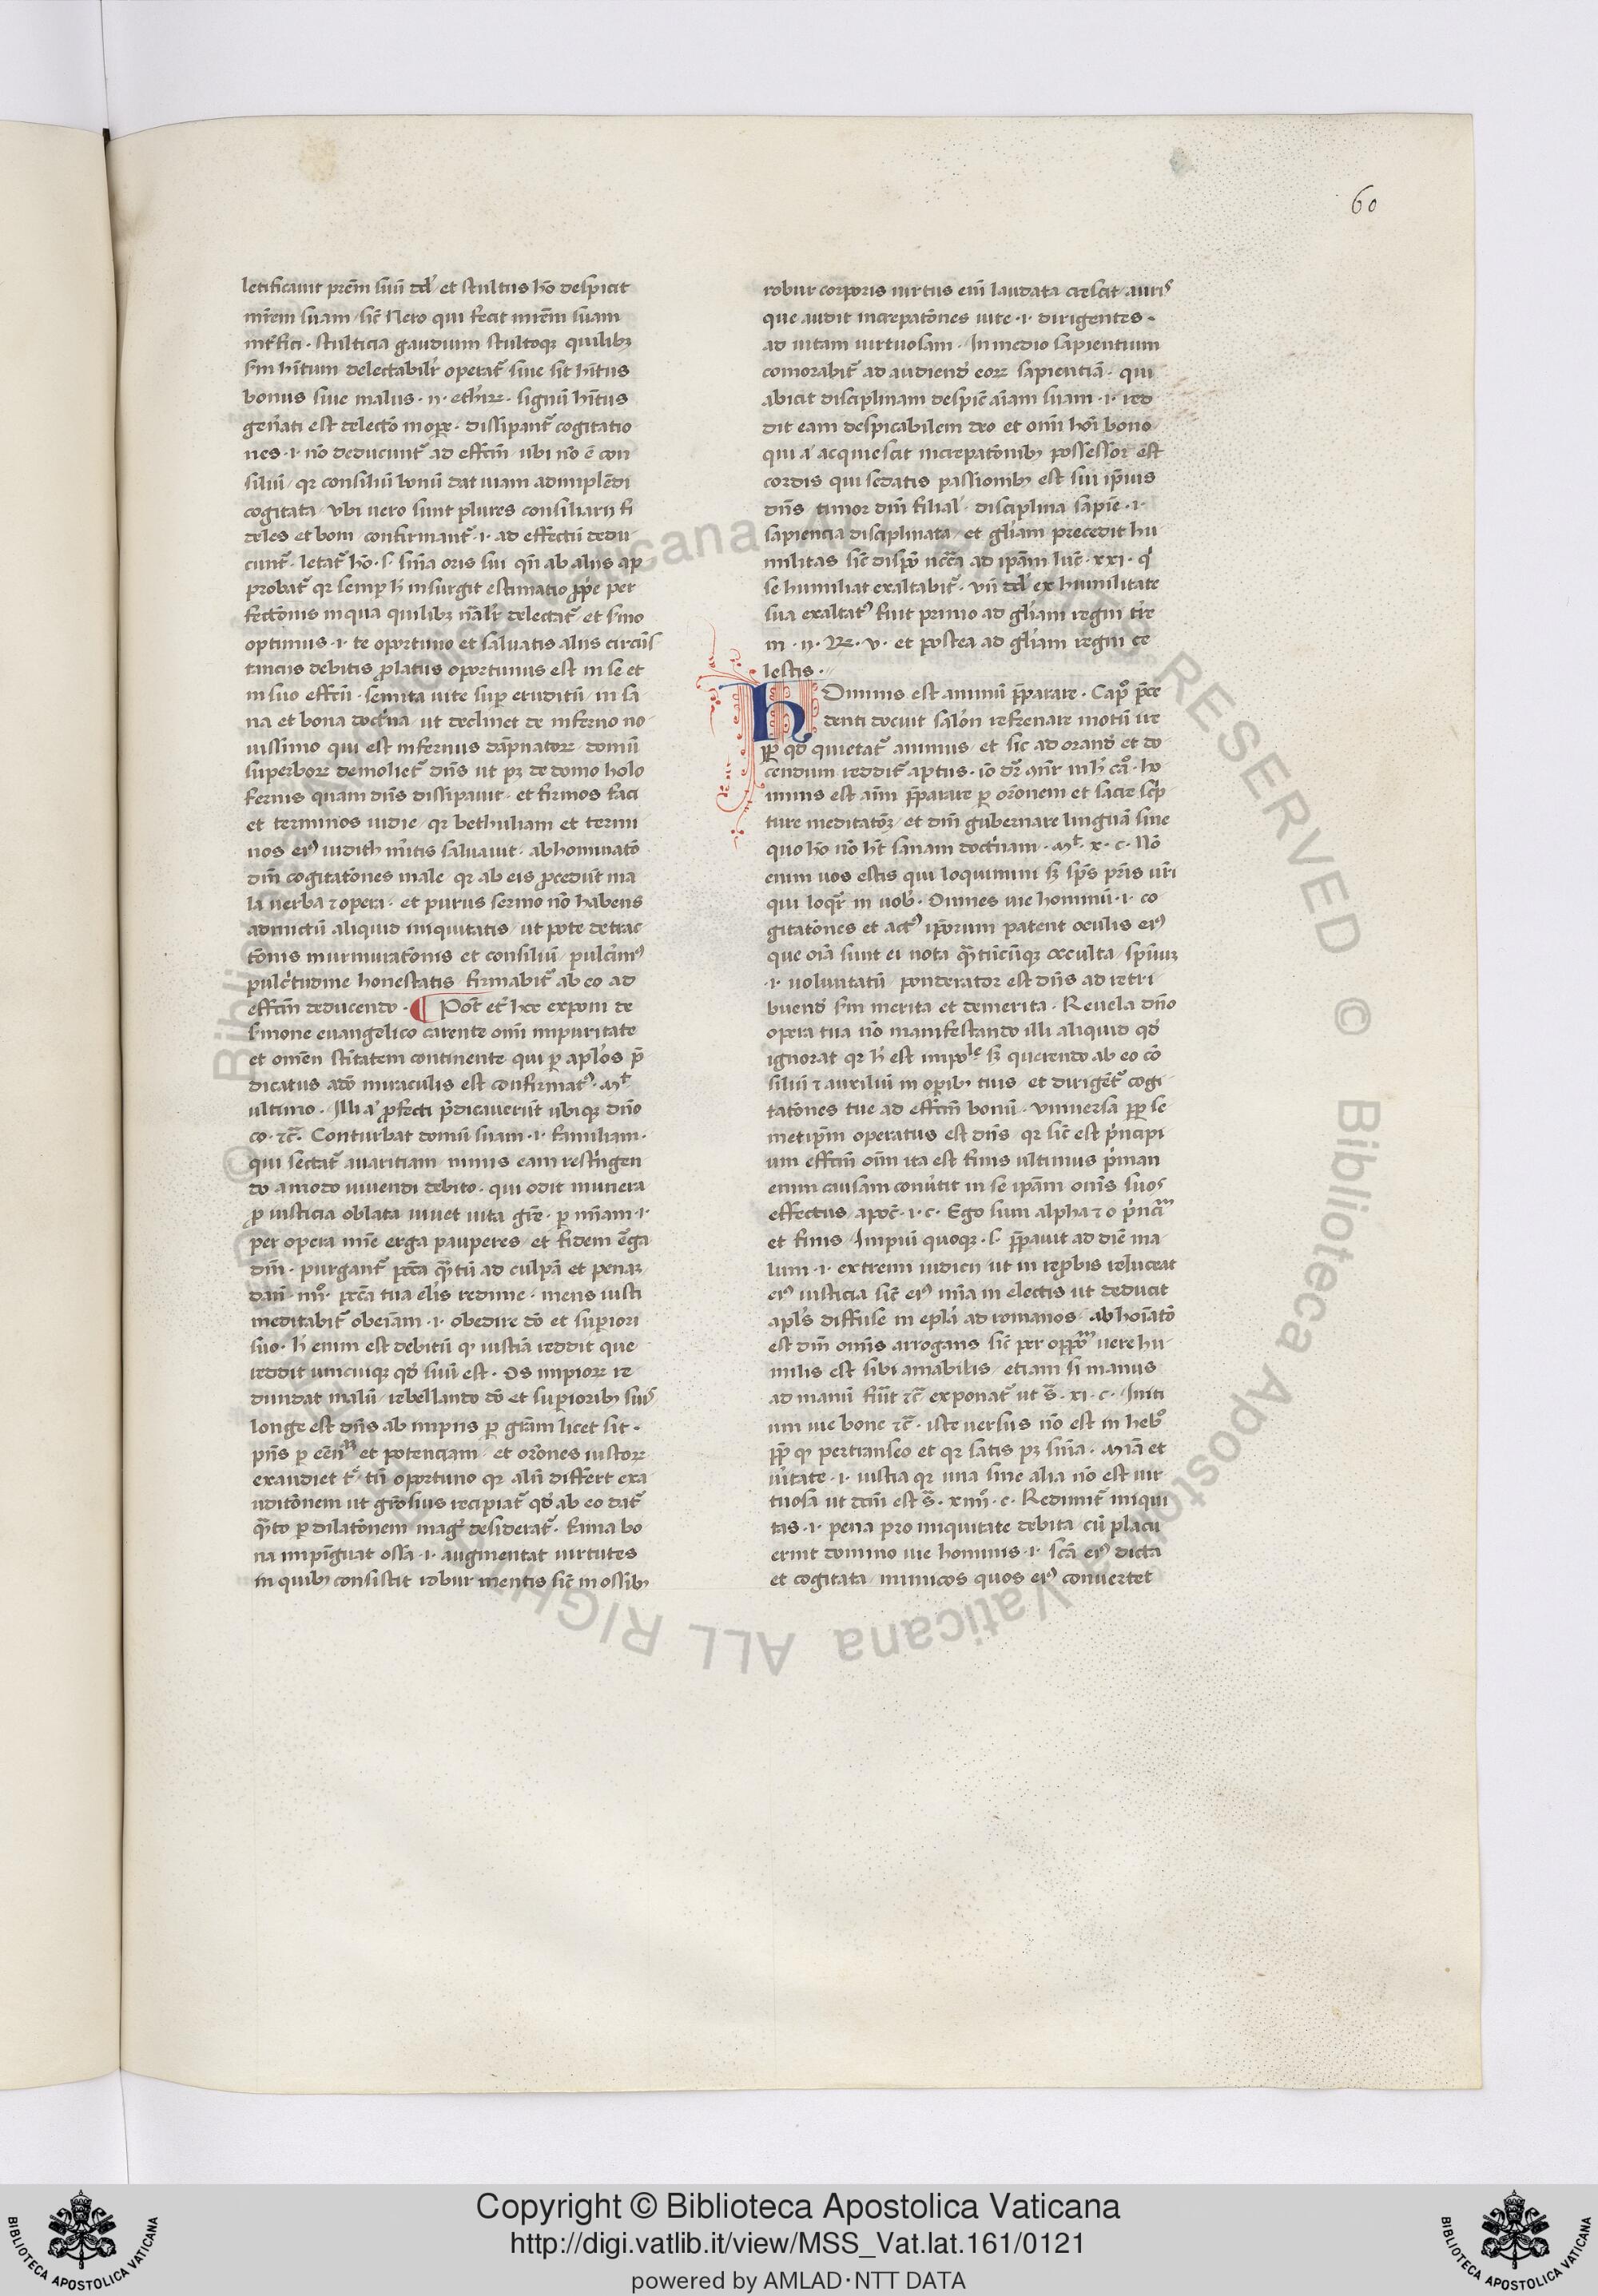 60
letificauit prēm suū dd' et stultus hō despicit
mr̄em suam sic̄ Nero qui fecit mr̄em suam
int̄fici · stulticia gaudium stultoꝝ quilibꝫ
sm̄ hītum delectabilit̄ operat̄ siue sit hītus
bonus siue malus · ii · ethiꝝ · signū hītus
gen̄ati est delectō in oꝑe · dissipant̄ cogitatio
nes · i · nō deducunt̄ ad effcm̄ ubi nō ē con
siliū qr consiliū bonū dat uiam adimplēdi
cogitata ubi uero sunt plures consiliarij fi
deles et boni confirmant̄ · i · ad effectū dedu
cunt̄ · letat̄ hō · i · sn̄ia oris sui qn̄ ab aliis ap
probat̄ qr semp h̄ insurgit estimatio ꝓp̄e per
fectōnis in qua quilibꝫ nāl'r delectat̄ et s̄mo
optimus · i · te oportuno et saluatis aliis circūs
tanciis debitis ꝓlatus oportunus est in se et
in suo effctū · semita uite suꝑ eruditū in sa
na et bona doct̄na ut declinet de inferno no
uissimo qui est infernus dāpnatoꝝ domū
superboꝝ demoliet̄ dn̄s ut pꝫ de domo holo
fernis quam dn̄s dissipauit · et firmos faci
et terminos uidue qr bethuliam et termi
nos eiꝰ iudith m̄itis saluauit · abhominatō
dn̄i cogitatōnes male qr ab eis ꝓcedūt ma
la uerba ⁊ opera · et purus sermo nō habens
admictū aliquid iniquitatis ut pote detrac
tōnis murmuratōnis et consiliū pulcrimꝰ
pulc̄tudine honestatis firmabit̄ ab eo ad
effcm̄ deducendo · ¶ Pōt et̄ hec exponi de
s̄mone euangelico carente omī impuritate
et omēn sc̄itatem continente qui ꝑ aplos p̄
dicatus adō miraculis est confirmatꝰ · mt̄
ultimo · Illi ā profecti p̄dicauerūt ubiqꝫ dn̄o
co · ⁊c̄ · Conturbat domū suam · i · familiam ·
qui sectat̄ auaritiam nimis eam rest̄ngen
do a modo uiuendi debito · qui odit munera
ꝓ iusticia oblata uiuet uita gr̄e · ꝑ mīam · i ·
per opera mīe erga pauperes et fidem ērga
dm̄ · purgant̄ pctā q̄ntū ad culpā et penaꝫ
dani · iiij · pctā tua elīs redime · mens iusti
meditabit̄ obeīam · i · obedire dō et suꝑiori
suo · h̄ enim est debitū ꝙ iustīa reddit que
reddit unicuiqꝫ qd̄ suū est · Os impioꝝ re
dundat malū rebellando dō et suꝑioribꝫ suis
longe est dn̄s ab impiis ꝑ grām licet sit ·
pn̄s ꝑ eēn et potenciam et orōnes iustoꝝ
exaudiet tꝰ tn̄ oportuno qr aliū differt exa
uditōnem ut grōsius recipiat̄ qd̄ ab eo dat̄
q̄nto ꝑ dilatōnem mag' desiderat̄ · Fama bo
na impīguat ossa · i · augmentat uirtutes
in quibꝫ consistit robur mentis sic̄ in ossibꝫ
robur corporis uirtus enī laudata crescit auris
que audit increpatōnes uite · i · dirigentes ·
ad uitam uirtuosam · In medio sapientium
comorabit̄ ad audiendū eoꝝ sapientiā · qui
abicit disciplinam despic̄ aīam suam · i · red
dit eam despicabilem deo et omī hoī bono
qui ā acquiescit increpatōnibꝫ possessor est
cordis qui sedatis passionibꝫ est sui ip̄ius
dn̄s timor dn̄i filial' disciplina sapīe · i ·
sapiencia disciplinata et gl'iam precedit hu
militas sic̄ dispō nccā ad ipām luc̄ · xxi · q'
se humiliat exaltabit̄ · vn̄ dd' ex humilitate
sua exaltatꝰ fuit primo ad gl'iam regni t̄re
in · ii · Re · v · et postea ad gl'iam regni ce
lestis ·
hOminis est animū p̄parare · Capº p̄ce
denti docuit salōn refrenare motū ire
ꝑ qd̄ quietat̄ animus et sic ad orandū et do
cendum reddit̄ aptus · iō dr̄ aūt in h̄ caº · ho
minis est aīm p̄parare ꝑ orōnem et sacre sc̄p
ture meditatōꝫ et dn̄i gubernare linguā sine
quo hō nō ht̄ sanam doct̄nam · mt̄ · x · c · Nō
enim uos estis qui loquimini sꝫ sp̄s pr̄is ur̄i
qui loqr̄ in uob' · Omnes uie hominū · i · co
gitatōnes et actꝰ ip̄orum patent oculis eiꝰ
que oīa sunt ei nota q̄ntūcūqꝫ occulta sp̄uūꝫ
· i · uoluntatū ponderator est dn̄s ad retri
buendū sm̄ merita et demerita · Reuela dn̄o
opera tua nō manifestando illi aliquid qd̄
ignorat qr h̄ est impole sꝫ querendo ab eo cō
siliū ⁊ auxiliū in oꝑibꝫ tuis et dirigēt̄ cogi
tatōnes tue ad effcm̄ bonū · vniuersa ꝓp se
metip̄m operatus est dn̄s qr sic̄ est p̄ncipi
um effcm̄ oīm ita est finis ultimus p̄man
enim causam conūtit in se ipām omīs suos
effectus apoc̄ · i · c · Ego sum alpha ⁊ o p̄ncim
et finis · Impiū quoqꝫ · s · p̄pauit ad diē ma
lum · i · extremi iudicij ut in reꝓbis reluceat
eiꝰ iusticia sic̄ eiꝰ mīa in electis ut deducit
apl's diffuse in epla ad romanos · abhoīatō
est dn̄i omīs arrogans sic̄ per opp̄m uere hu
milis est sibi amabilis etiam si manus
ad manū fūit ⁊c̄ exponat̄ ut s̄ · xi · c · Initi
um uie bone ⁊c̄ · iste uersus nō est in hebº
ꝓp ꝙ pertranseo et qr satis pꝫ sn̄ia · Mīa et
ūitate · i · iustīa qr una sine alia nō est uir
tuosa ut dcm̄ est s̄ · xiiij · c · Redimit̄ iniqui
tas · i · pena pro iniquitate debita cū placu
erint domino uie hominis · i · scā eiꝰ dicta
et cogitata inimicos quos eiꝰ conuertet
© Biblioteca Apostolica Vaticana ALL RIGHTS RESERVED
Copyright © Biblioteca Apostolica Vaticana
http://digi.vatlib.it/view/MSS_Vat.lat.161/0121
powered by AMLAD·NTT DATA
BIBLIOTECA APOSTOLICA VATICANA
BIBLIOTECA APOSTOLICA VATICANA